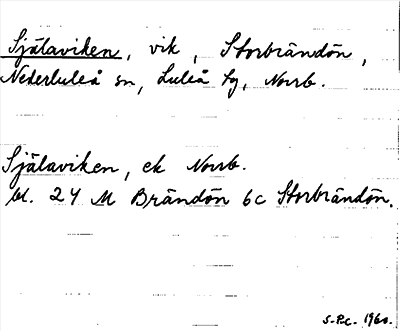 Själaviken, vik, Storbrändön,
Nederluleå sn, Luleå tg, Norrb.
Själaviken, ek Norrb.
bl. 24 M Brändön 6c Storbrändön.
S-P.C. 1960.